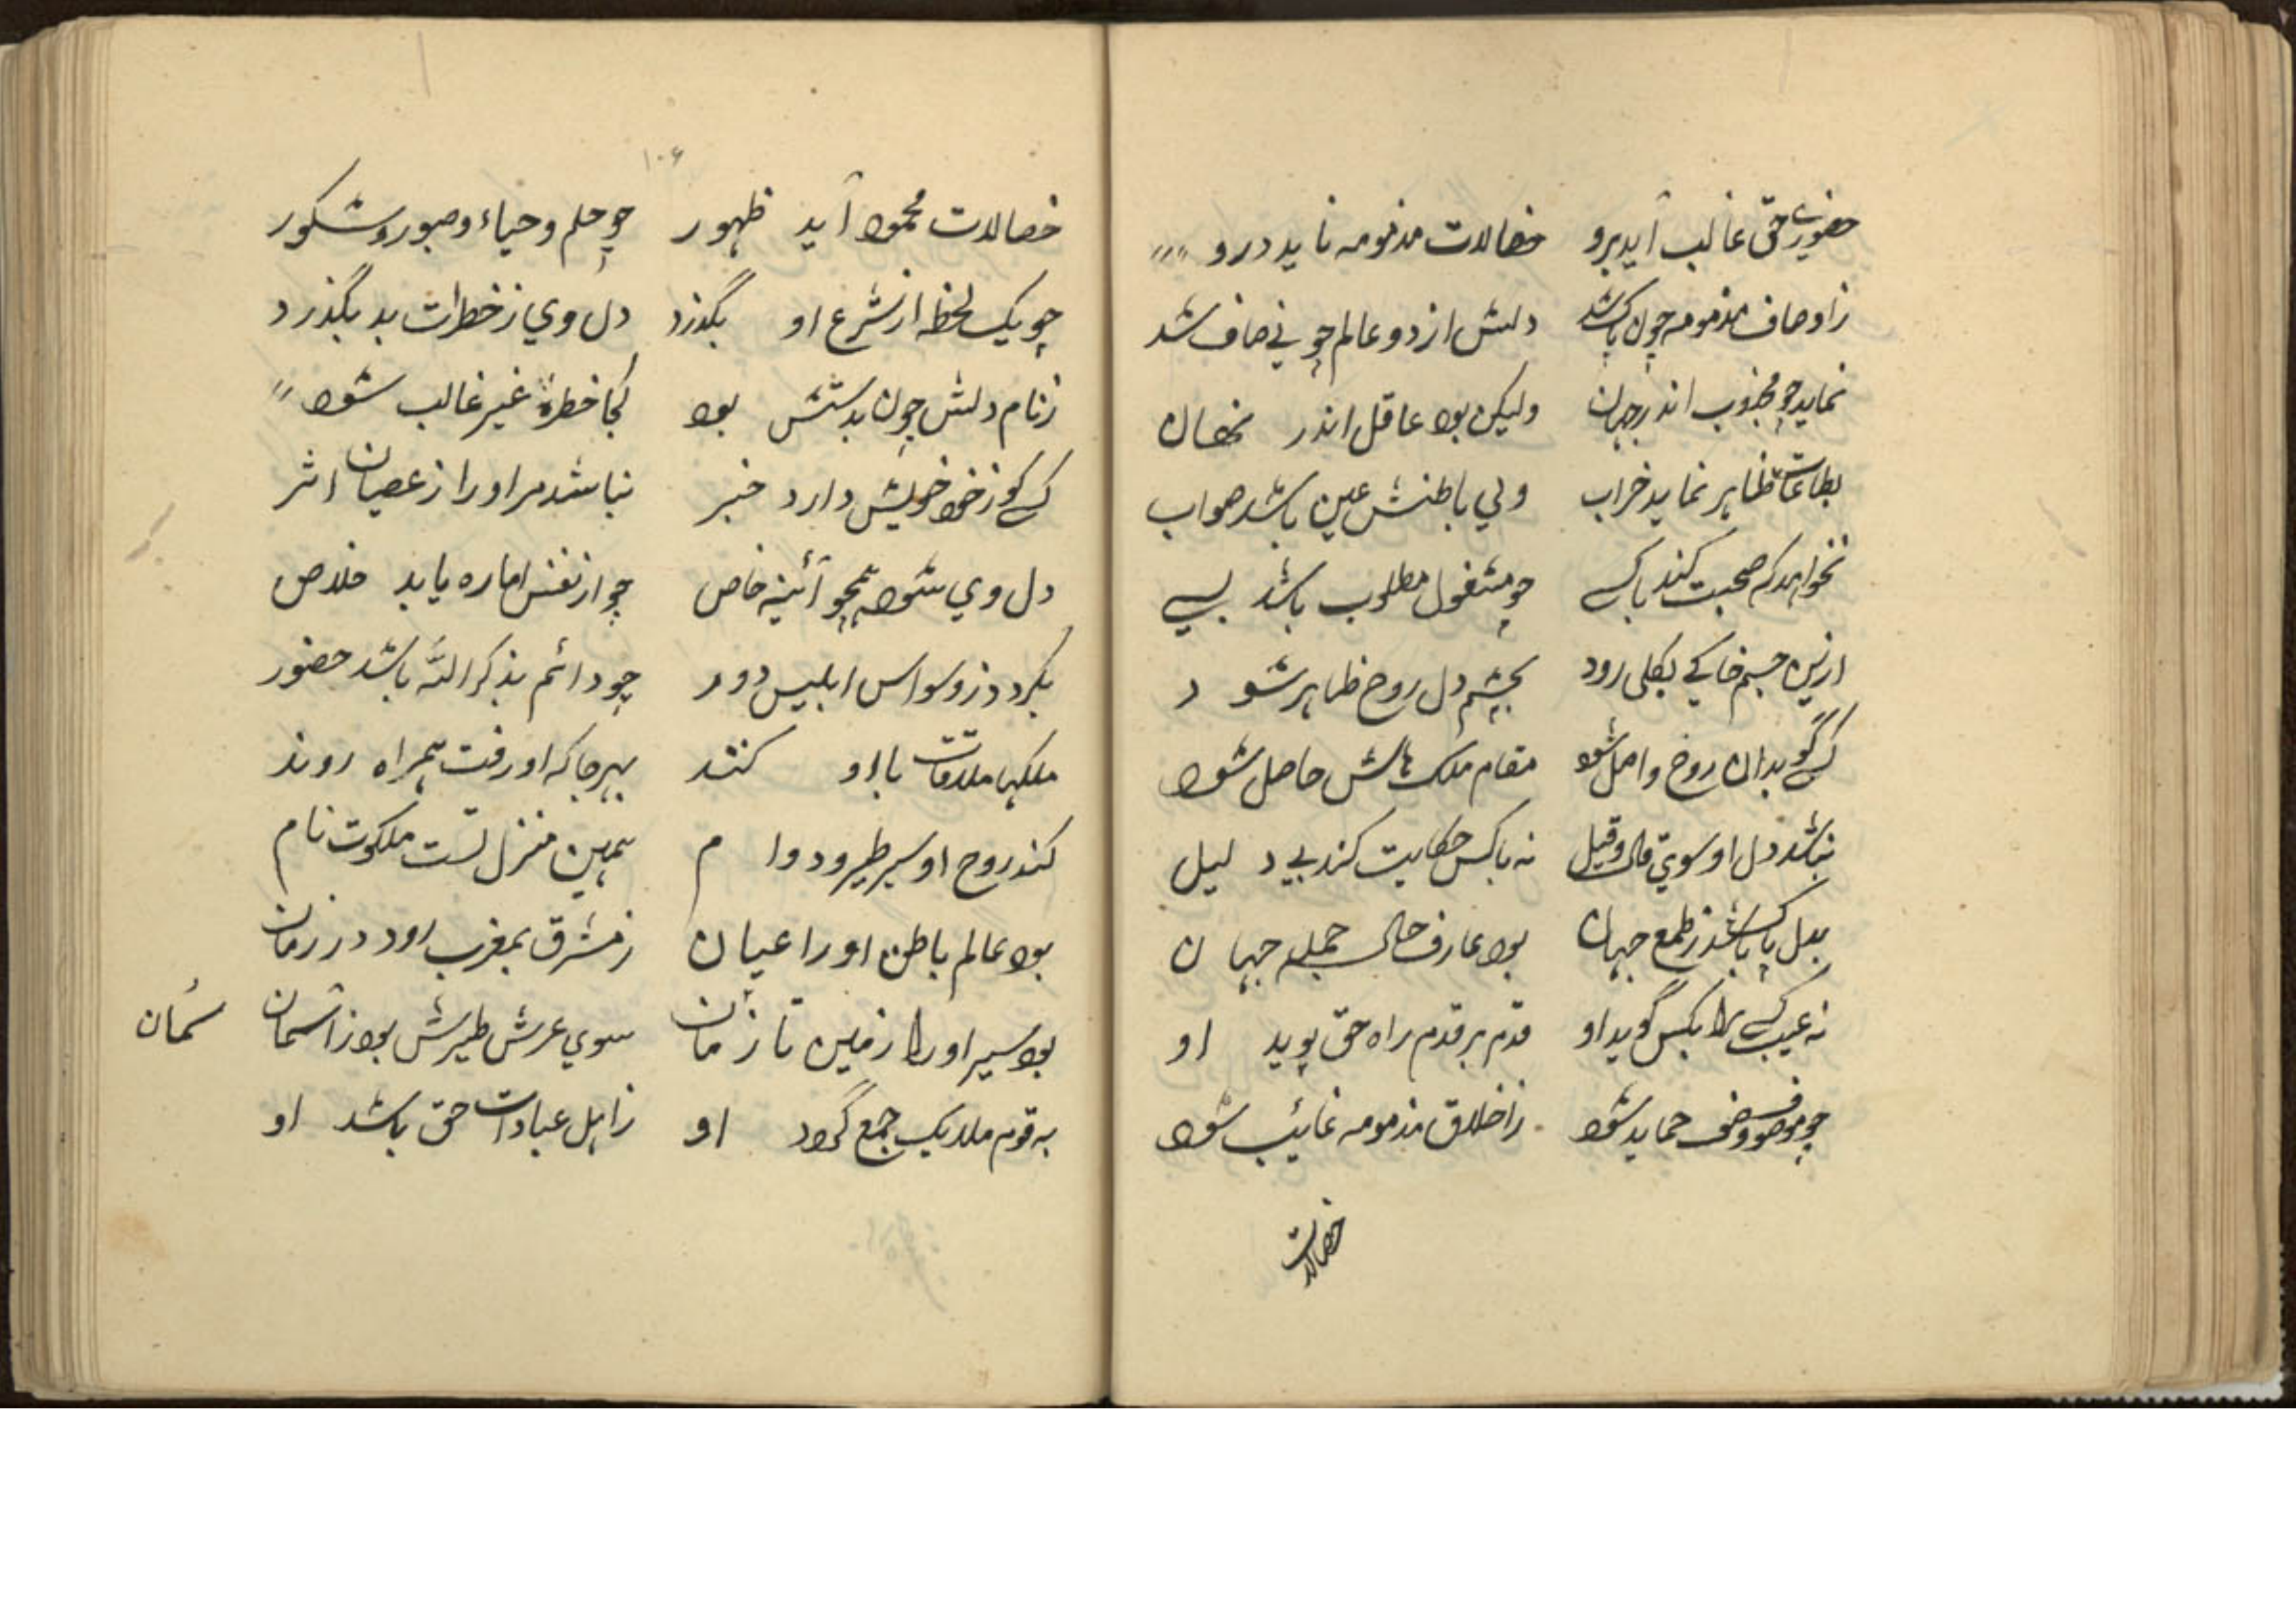 حضوری حق غالب آید برو خصالات مذمومه ناید درو
ز اوصاف مذمومه چون پاک شد دلش از دو عالم چو نی صاف شد
نماید چو مجذوب اندر جهان ولیکن بود عاقل اندر نهان
بطاعات ظاهر نماید خراب ولی باطنش عین باشد صواب
نخواهد که صحبت کند با کسے چو مشغول مطلوب باشد بسے
ازین جسم خاکی بکلی رود بچشم دل روح ظاهر شود
کسے گو بدان روح واصل شود مقام ملک هاش حاصل شود
نباشد دل او سوی قال و قیل نه با کس حکایت کند بی دلیل
بدل پاک باشد ز طمع جهان بود عارف حال جمله جهان
نه عیب کسے را بکس گوید او قدم بر قدم راه حق پوید او
چو موصوف وصف حماید شود ز اخلاق مذمومه غائب شود
خصالات
۱۰۶
خصالات محمود آید ظهور چو حلم و حیاء و صبور و شکور
چو یک لحظه از شرع او بگذرد دل وی ز خطرات بد بگذرد
زمام دلش چون بدستش بود کجا خطرهٔ غیر غالب شود
کسے کو ز خود خویش دارد خبر نباشد مر او را ز عصیان اثر
دل وی شود همچو آئینه خاص چو از نفس اماره یابد خلاص
بگردد ز وسواس ابلیس دور چو دائم بذکر الله باشد حضور
ملکها ملاقات با او کنند بهر جا که او رفت همراه روند
کند روح او سیر طیر و دوام همین منزل تست ملکوت نام
بود عالم باطن او را عیان ز مشرق بمغرب رود در زمان
بود سیر او را ز زمین تا زمان سوی عرش طیرش بود ز آسمان
سمان
به قوم ملایک جمع گردد او ز اهل عبادات حق باشد او